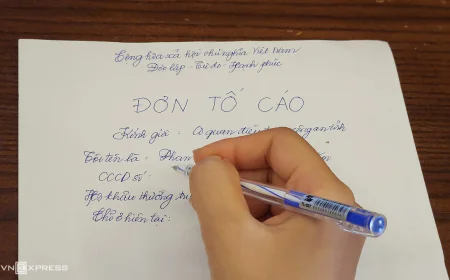 Cộng hòa xã hội chủ nghĩa Việt Nam
Độc lập - Tự do - Hạnh phúc
ĐƠN TỐ CÁO
Kính gửi : Cơ quan điều công an tỉnh
Tôi tên là : Phạm
CCCD số :
Hộ khẩu thường
Chỗ ở hiện tại :
VNEXPRESS